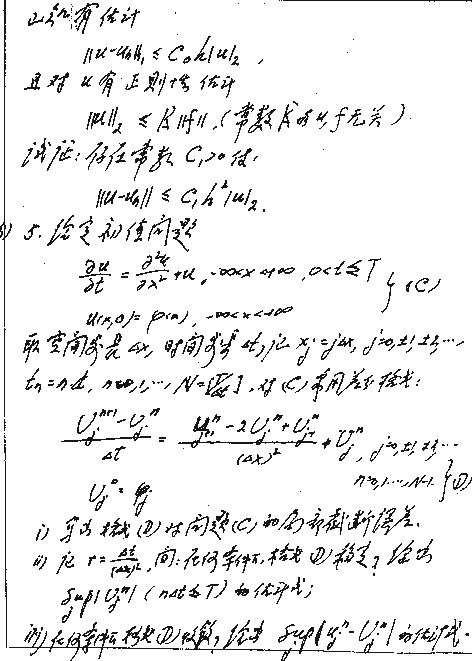 有估计
||u-u_h||₁ ≤ C₀h|u|₂,
且对 u 有正则性估计
||u||₂ ≤ K||f||, (常数K与u,f无关).
试证:存在常数 C₁>0 使
||u-u_h|| ≤ C₁h²|u|₂.
5. 给定初值问题
∂u/∂t = ∂²u/∂x² + u, -∞<x<+∞, 0<t≤T
u(x,0)=φ(x), -∞<x<+∞ } (C)
取空间步长 Δx, 时间步长 Δt, 记 x_j=jΔx, j=0,±1,±2,…
t_n=nΔt, n=0,1,…,N=[T/Δt], 对(C)常用差分格式:
(U_j^{n+1}-U_j^n)/Δt = (U_{j+1}^n-2U_j^n+U_{j-1}^n)/(Δx)² + U_j^n, j=0,±1,±2,…
n=0,1,…,N-1 } (D)
U_j^0=φ_j
i) 写出格式(D)对问题(C)的局部截断误差.
ii) 记 r=Δt/(Δx)², 问:在何条件下,格式(D)稳定?给出
sup_j|U_j^n| (nΔt≤T) 的估计式;
iii) 在何条件下格式(D)收敛?给出 sup|u_j^n-U_j^n| 的估计式.